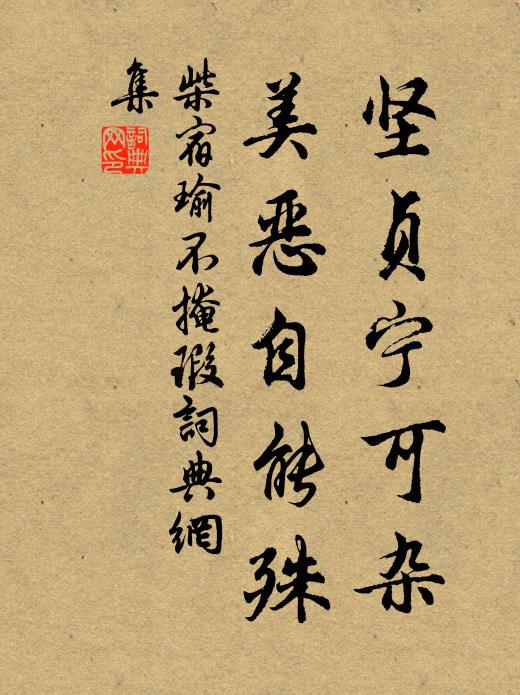 坚贞宁可杂
美恶自能殊
柴宿瑜不掩瑕詞典網
集
詞典
网印